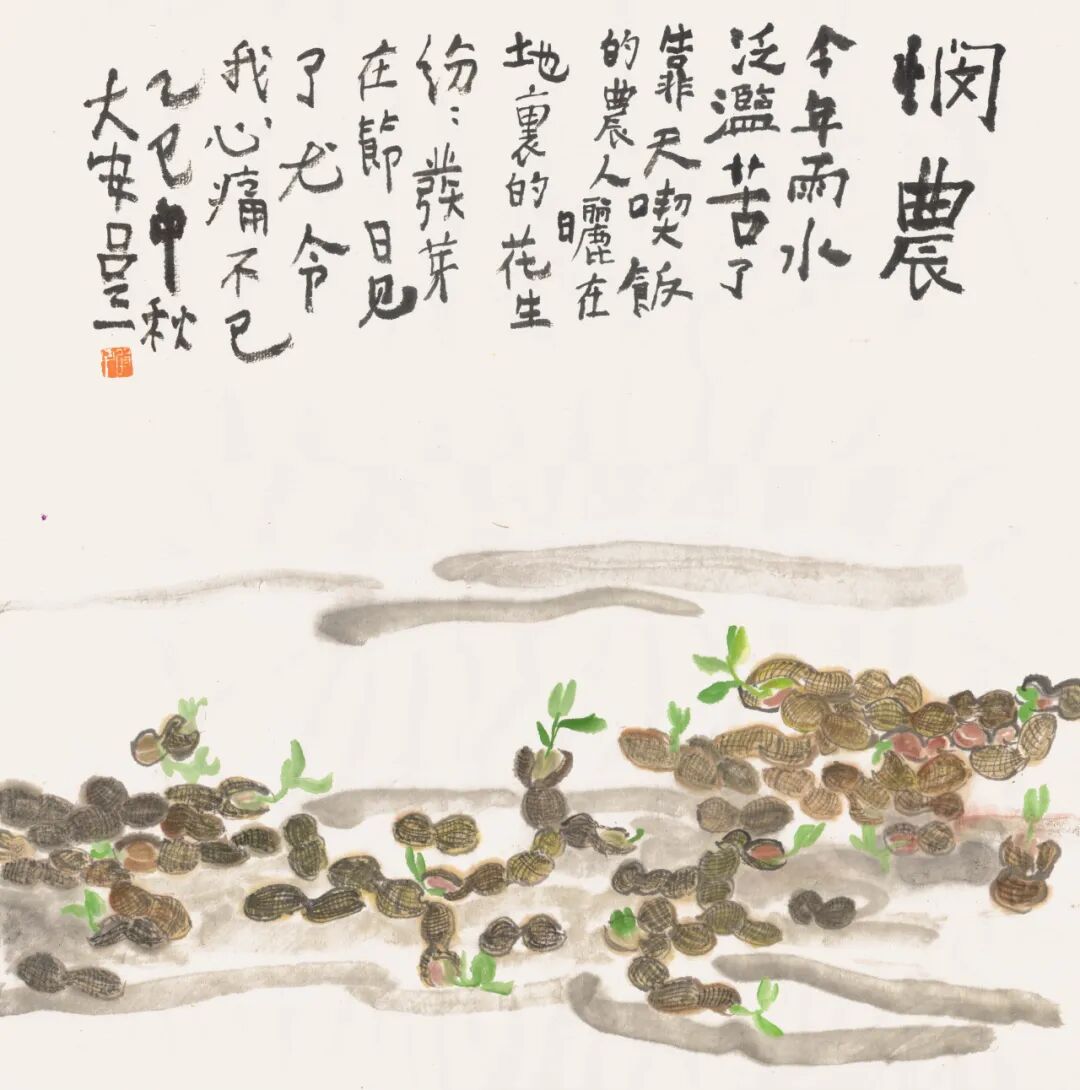 憫農
今年雨水
泛濫苦了
靠天喫飯
的農人曬在
地裏的花生
紛〻發芽
在節日見
了尤令
我心痛不已
乙巳中秋
大安吕三